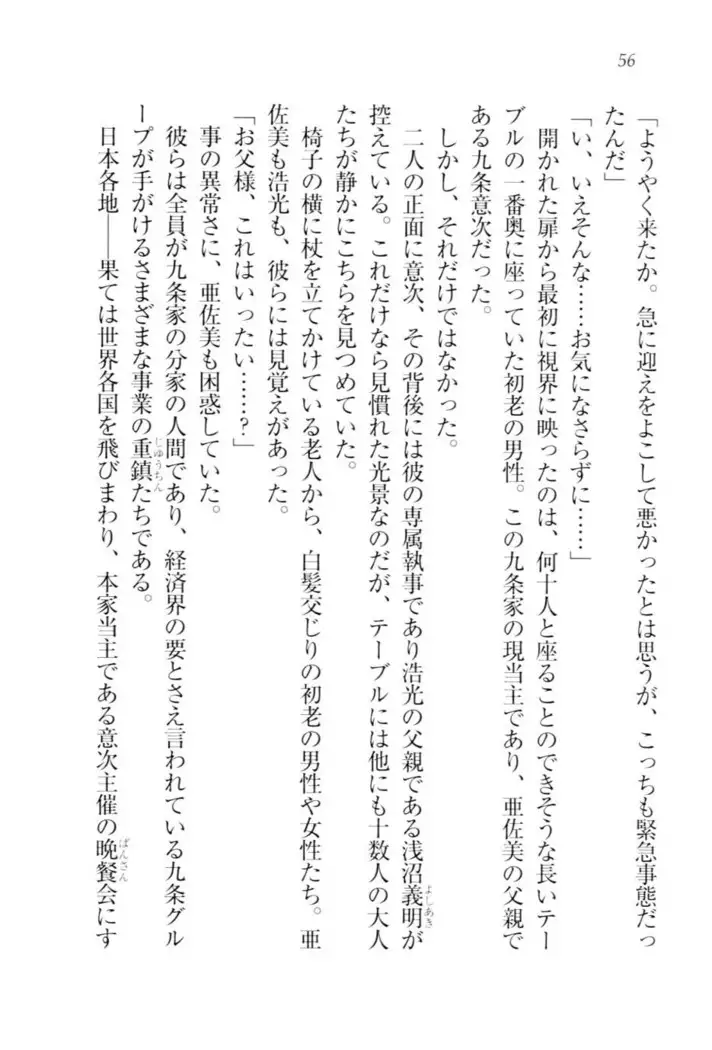 56
「ようやく来たか。急に迎えをよこして悪かったとは思うが、こっちも緊急事態だっ
たんだ」
「い、いえそんな……お気になさらずに……」
　開かれた扉から最初に視界に映ったのは、何十人と座ることのできそうな長いテー
ブルの一番奥に座っていた初老の男性。この九条家の現当主であり、亜佐美の父親で
ある九条意次だった。
　しかし、それだけではなかった。
　二人の正面に意次、その背後には彼の専属執事であり浩光の父親である浅沼義明が
控えている。これだけなら見慣れた光景なのだが、テーブルには他にも十数人の大人
たちが静かにこちらを見つめていた。
　椅子の横に杖を立てかけている老人から、白髪交じりの初老の男性や女性たち。亜
佐美も浩光も、彼らには見覚えがあった。
「お父様、これはいったい……？」
　事の異常さに、亜佐美も困惑していた。
　彼らは全員が九条家の分家の人間であり、経済界の要とさえ言われている九条グル
ープが手がけるさまざまな事業の重鎮たちである。
　日本各地――果ては世界各国を飛びまわり、本家当主である意次主催の晩餐会にす